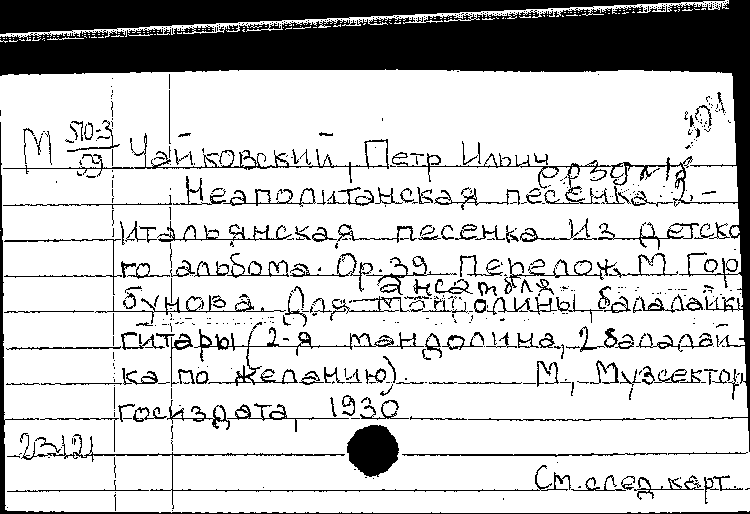 304
М 510-3/59 Чайковский, Петр Ильич
ор39 №18
Неаполитанская песенка, 2-
Итальянская песенка Из Детско
го альбома. Ор.39 Перелож М. Гор
ансамбля
бунова. Для мандолины, балалайки
гитары (2-я мандолина, 2 балалай-
ка по желанию). М., Музсектор
госиздата, 1930
23121
См. след. карт.